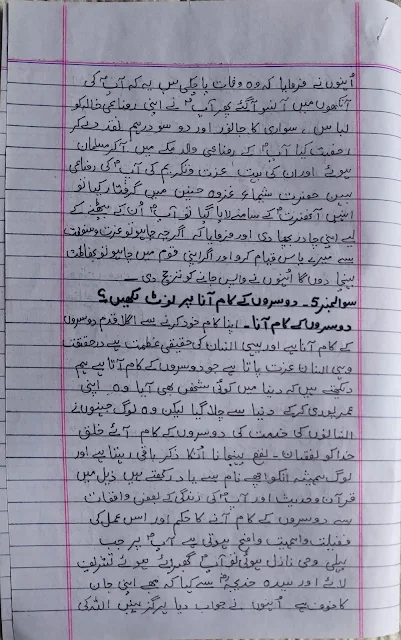 اُنہوں نے فرمایا کہ وہ وفات پا چکی ہیں یہ کہ آپؐ کی
آنکھوں میں آنسو آگئے پھر آپؐ نے اپنی رضاعی خالہ کو
لباس، سواری کا جانور اور دو سو درہم نقد دے کر
رخصت کیا آپؐ کے رضاعی والد مکے میں آکر مسلمان
ہوئے اور ان کی بہت عزت و تکریم کی آپؐ کی رضاعی
بہن حضرت شیماء غزوہ حنین میں گرفتار کیا تو
انہیں آنحضرتؐ کے سامنے لایا گیا تو آپؐ اُن کے بیٹھنے کے
لیے اپنی چادر بچھا دی اور فرمایا کہ اگر چہ چاہو تو عزت و
سے میرے پاس قیام کرو اور اگر اپنی قوم میں چاہو تو بحفاظت
پہنچا دوں گا اُنہوں نے واپس جانے کو ترجیح دی۔
سوال نمبر 5۔ دوسروں کے کام آنا پر نوٹ لکھیں؟
دوسروں کے کام آنا۔ اپنا کام خود کرنے سے اگلا قدم دوسروں
کے کام آنا ہے اور یہی انسان کی حقیقی عظمت ہے درحقیقت
وہی انسان عزت پاتا ہے جو دوسروں کے کام آتا ہے ہم
دیکھتے ہیں کہ دنیا میں کوئی شخص بھی آیا وہ اپنی
عمر پوری کرکے دنیا سے چلا گیا لیکن وہ لوگ جنہوں نے
انسانوں کی خدمت کی دوسروں کے کام آئے خلق
خدا کو نقصان۔ نفع پہنچانا انکا ذکر باقی رہتا ہے اور
لوگ ہمیشہ انکو اچھے نام سے یاد رکھتے ہیں ذیل میں
قرآن و حدیث اور آپؐ کی زندگی کے بعض واقعات
سے دوسروں کے کام آنے کا حکم اور اس عمل کی
فضیلت و اہمیت واضح ہوتی ہے آپؐ پر جب
پہلی وحی نازل ہوئی تو آپؐ گھبرائے ہوئے تشریف
لائے اور سیدہ خدیجہؓ سے کہا کہ مجھے اپنی جان
کا خوف ہے اُنہوں نے جواب دیا ہرگز نہیں اللہ کی